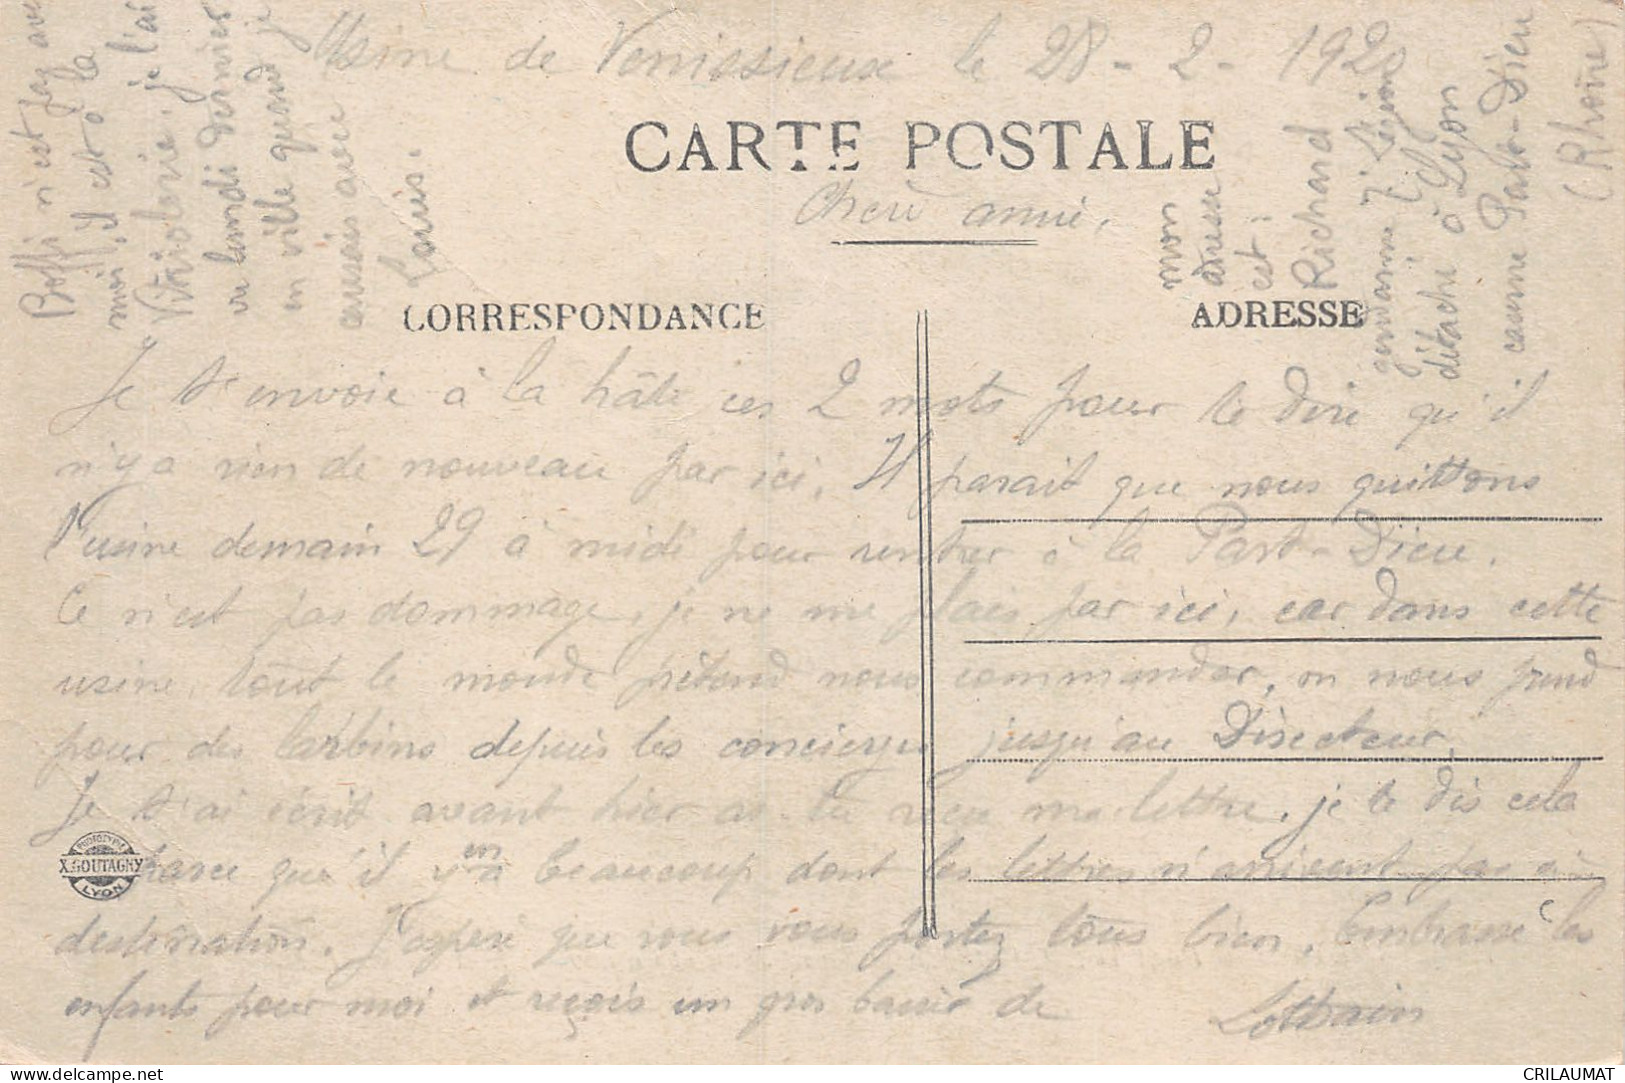 Usine de Venissieux le 28-2-1920
CARTE POSTALE
Chère amie,
CORRESPONDANCE
ADRESSE
Je t'envoie à la hâte ces 2 mots pour te dire qu'il
n'y a rien de nouveau par ici. Il parait que nous quittons
l'usine demain 29 à midi pour rentrer à la Part-Dieu.
Ce n'est pas dommage, je ne me plais par ici, car dans cette
usine, tout le monde prétend nous commander, on nous prend
pour des larbins depuis les concierges jusqu'au Directeur.
Je t'ai écrit avant hier as-tu reçu ma lettre, je te dis cela
parce que qu'il y en a beaucoup dont les lettres n'arrivent pas à
destination. J'espère que vous vous portez tous bien. Embrasse les
enfants pour moi et reçois un gros baiser de
Boffi n'est pas avec
moi, il est à la
Vitriolerie; je l'ai
vu lundi dernier
en ville quand je
causais avec
Louis.
mon
adresse
est:
Richard
gendarme 7e Légion
détaché à Lyon
caserne Part-Dieu
(Rhône)
PHOTOTYPIE
X.GOUTAGNY
LYON
CRILAUMAT